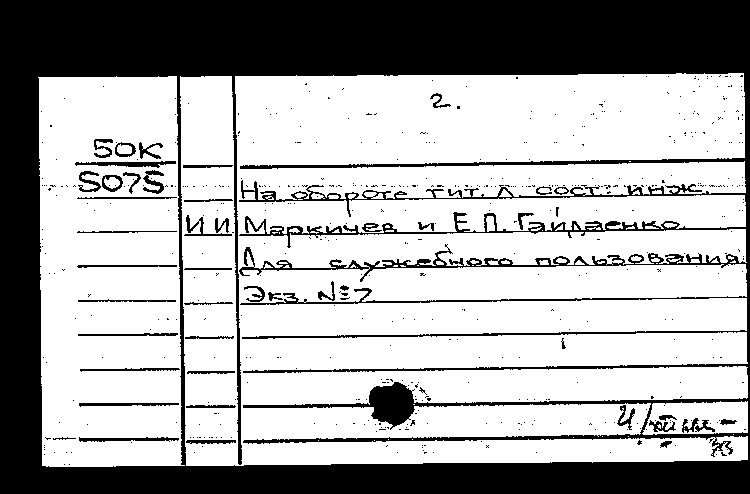 2.
50К
S075
На обороте тит. л. сост: инж.
И И Маркичев и Е.П. Гайдаенко.
Для служебного пользования.
Экз. №7